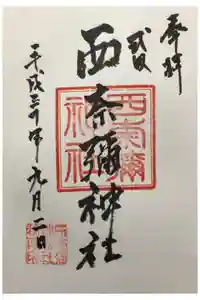 奉拝
式内
西奈彌神社
平成三十年九月二日
西奈彌神社